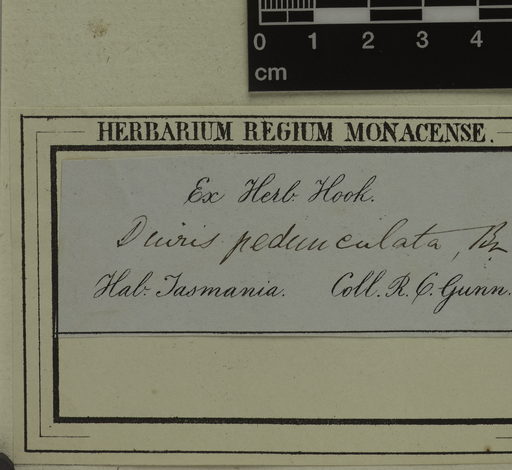 0 1 2 3 4
cm
HERBARIUM REGIUM MONACENSE.
Ex Herb. Hook.
Diuris pedunculata, Br
Hab. Tasmania. Coll. R. C. Gunn.